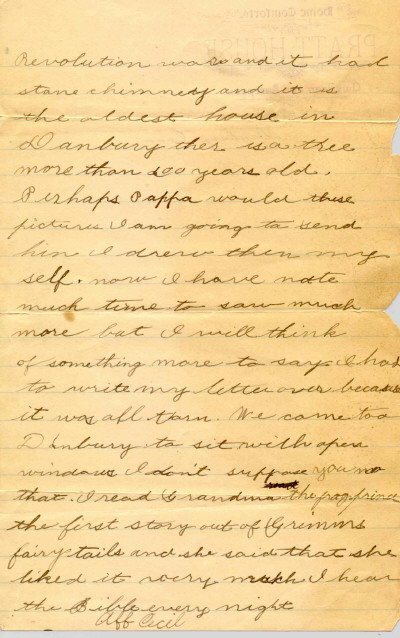 Revolution wars and it had
stone chimney and it is
the oldest house in
Danbury ther is a tree
more than 100 years old.
Perhaps Pappa would these
pictures I am going to send
him I drew them my
self. now I have note
much time to saw much
more but I will think
of something more to say. I had
to write my letter over because
it was all torn. We came to a
Danbury to sit with open
windows I don't suppose you no
that. I read Grandma the frog prince
the first story out of Grimms
fairy tails and she said that she
liked it very much I hear
the Bible every night
Aff Cecil
"Home Comforts
PRATT HOUSE